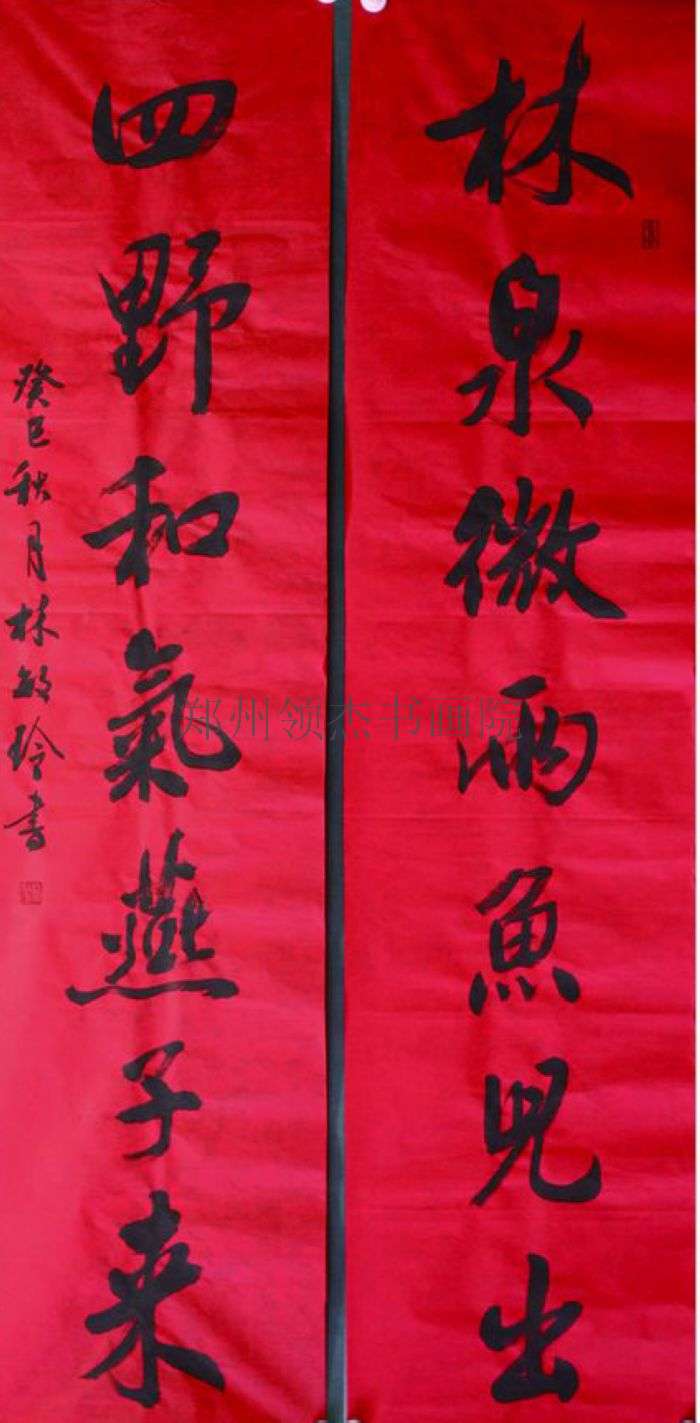 林泉微雨魚兒出
四野和氣燕子来
癸巳秋月林敏玲書
郑州领杰书画院